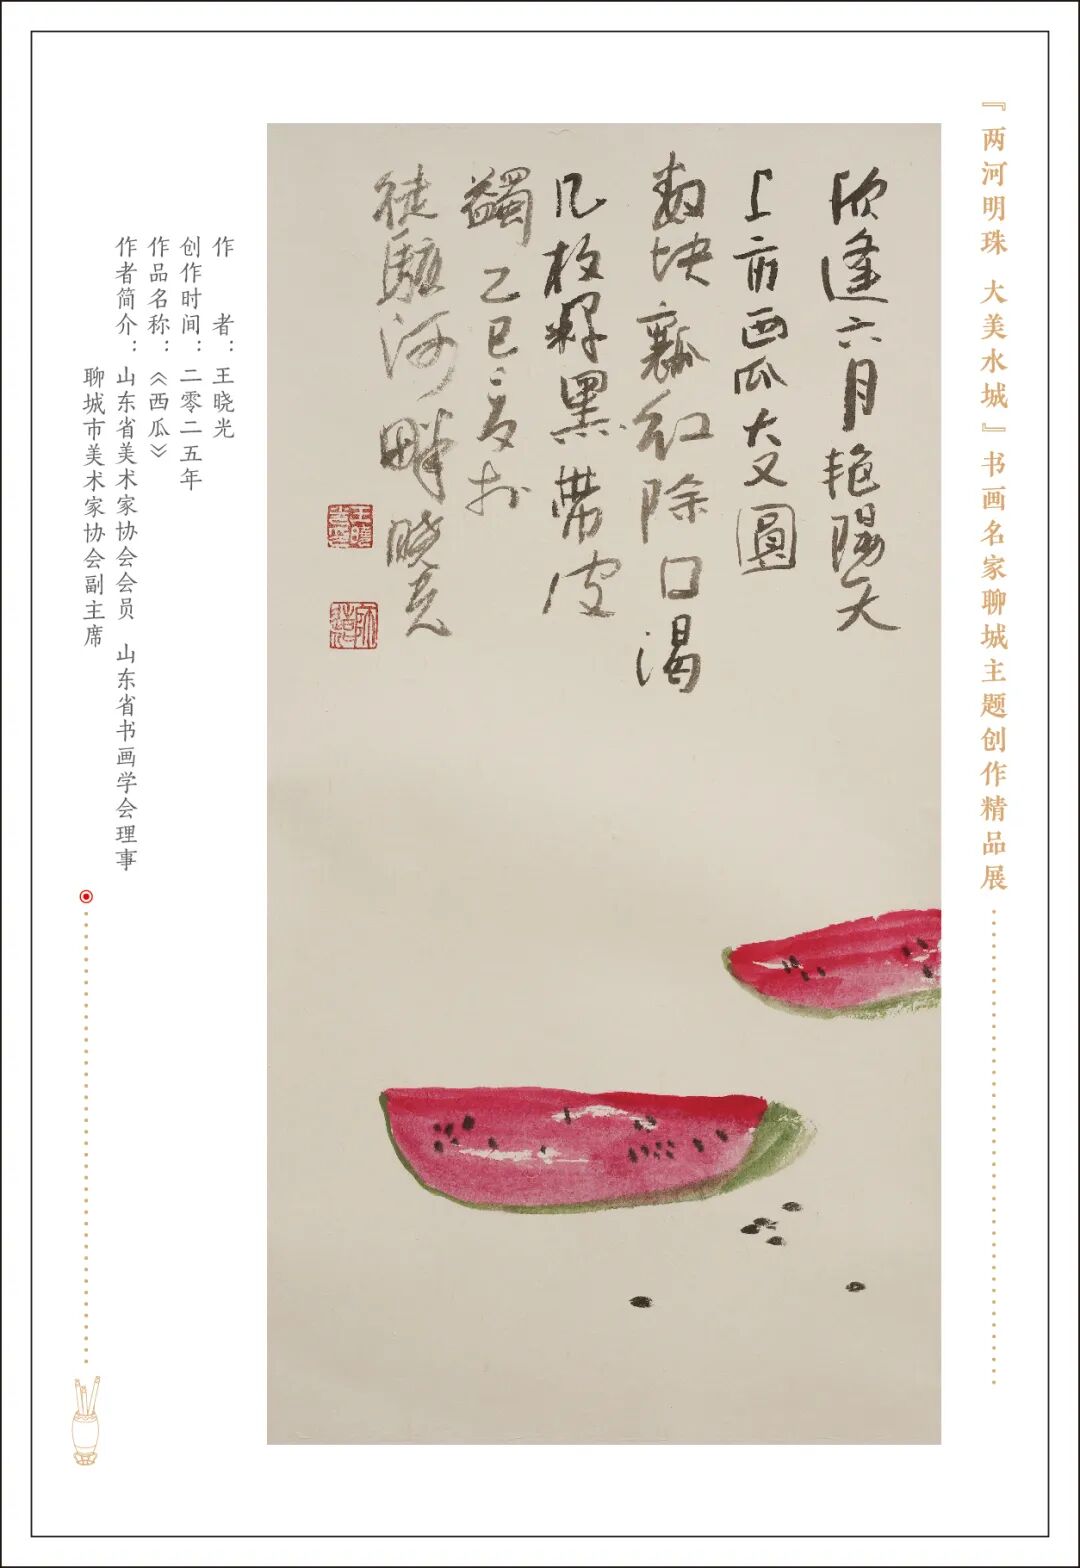 『两河明珠 大美水城』书画名家聊城主题创作精品展
欣逢六月艳阳天
上市西瓜大又圆
数块瓤红除口渴
几枚籽黑带皮
蠲 乙巳夏於
徒骇河畔 晓光
作 者：王晓光
创作时间：二零二五年
作品名称：《西瓜》
作者简介：山东省美术家协会会员 山东省书画学会理事
聊城市美术家协会副主席